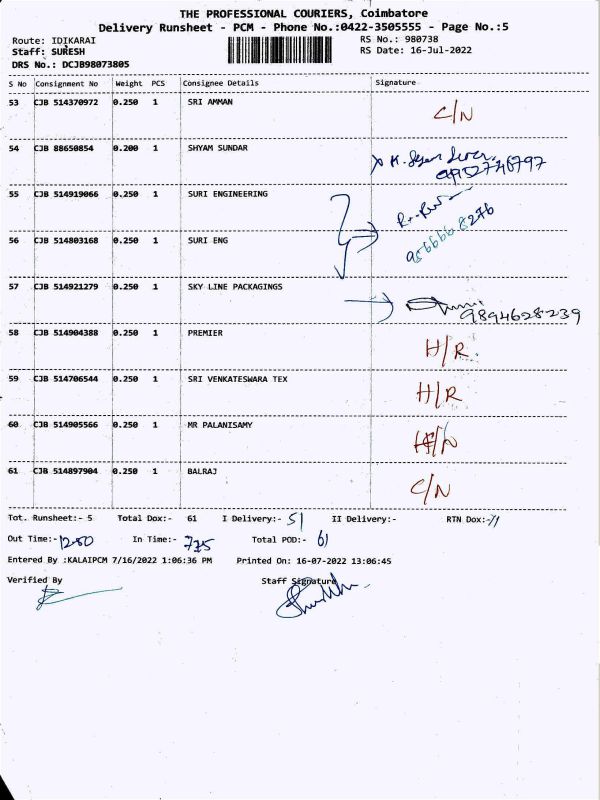 THE PROFESSIONAL COURIERS, Coimbatore
Delivery Runsheet - PCM - Phone No.:0422-3505555 - Page No.:5
Route: IDIKARAI RS No.: 980738
Staff: SURESH RS Date: 16-Jul-2022
DRS No.: DCJB98073805
S No Consignment No Weight PCS Consignee Details Signature
53 CJB 514370972 0.250 1 SRI AMMAN C/N
54 CJB 88650854 0.200 1 SHYAM SUNDAR
9952746797
55 CJB 514919066 0.250 1 SURI ENGINEERING
56 CJB 514803168 0.250 1 SURI ENG
57 CJB 514921279 0.250 1 SKY LINE PACKAGINGS 9894628239
58 CJB 514904388 0.250 1 PREMIER H/R
59 CJB 514706544 0.250 1 SRI VENKATESWARA TEX H/R
60 CJB 514905566 0.250 1 MR PALANISAMY
61 CJB 514897904 0.250 1 BALRAJ C/N
Tot. Runsheet:- 5 Total Dox:- 61 I Delivery:- 51 II Delivery:- RTN Dox:-
Out Time:- 12.50 In Time:- Total POD:- 61
Entered By :KALAIPCM 7/16/2022 1:06:36 PM Printed On: 16-07-2022 13:06:45
Verified By Staff Signature